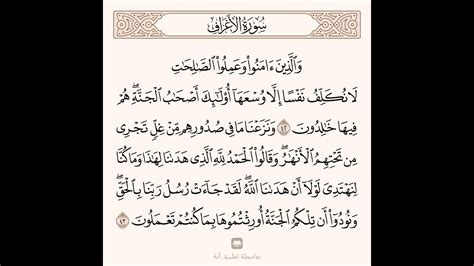 سُورَةُ الأَعْرَافِ
وَالَّذِينَ ءَامَنُوا وَعَمِلُوا الصَّالِحَاتِ
لَا نُكَلِّفُ نَفْسًا إِلَّا وُسْعَهَا أُولَٰئِكَ أَصْحَابُ الْجَنَّةِ ۖ هُمْ
فِيهَا خَالِدُونَ ٤٢ وَنَزَعْنَا مَا فِي صُدُورِهِم مِّنْ غِلٍّ تَجْرِي
مِن تَحْتِهِمُ الْأَنْهَارُ ۖ وَقَالُوا الْحَمْدُ لِلَّهِ الَّذِي هَدَانَا لِهَٰذَا وَمَا كُنَّا
لِنَهْتَدِيَ لَوْلَا أَنْ هَدَانَا اللَّهُ ۖ لَقَدْ جَاءَتْ رُسُلُ رَبِّنَا بِالْحَقِّ ۖ
وَنُودُوا أَن تِلْكُمُ الْجَنَّةُ أُورِثْتُمُوهَا بِمَا كُنتُمْ تَعْمَلُونَ ٤٣
بواسطة تطبيق آية